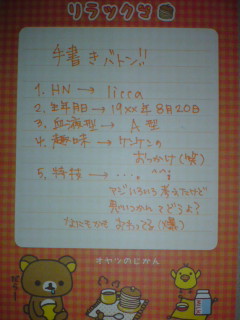 リラックマ
手書きバトン!!
1. HN → licca
2. 生年月日 → 19xx年8月20日
3. 血液型 → A型
4. 趣味 → ケンケンの
おっかけ(笑)
5. 特技 → ・・・。
マジいろいろ考えたけど
見つかんなくてどうよ?
なんちゅうか おわってる(爆)
オヤツのじかん